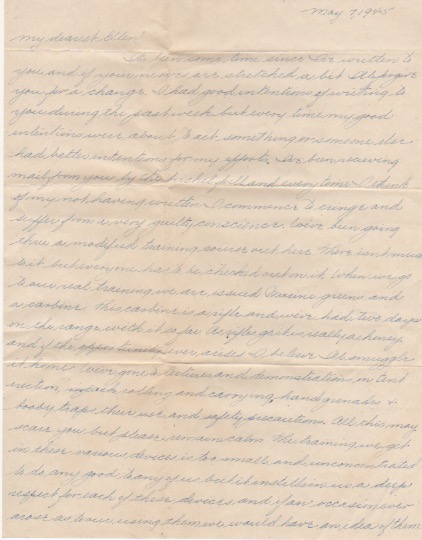 May 7, 1945
My dearest Ellen!
Its been some time since I've written to
you and if your nerves are stretched a bit I'll forgive
you for a change. I had good intentions of writing to
you during the past week but every time my good
intentions were about to act something or someone else
had better intentions for my efforts. I've been receiving
mail from you by the bushel full and every time I think
of my not having written I commence to cringe and
suffer from a very guilty conscience. We've been going
thru a modified training course out here. There isn't much
to it but every one has to be checked out on it. When we go
to our real training we are issued Marine greens and
a carbine. This carbine is a rifle and we've had two days
on the range with it so far. As rifles go it is really a honey
and if the opportunity ever arises I believe I'll smuggle
it home. We've gone to lectures and demonstration on
rolling and carrying, hand grenades +
booby traps, their use and safety precautions. All this may
scare you but please remain calm. The training we get
in these various devices is too small and unconcentrated
to do any good to any of us but it instills in us a deep
respect for each of these devices and if an occasion ever
arose as to our using them we would have an idea of them